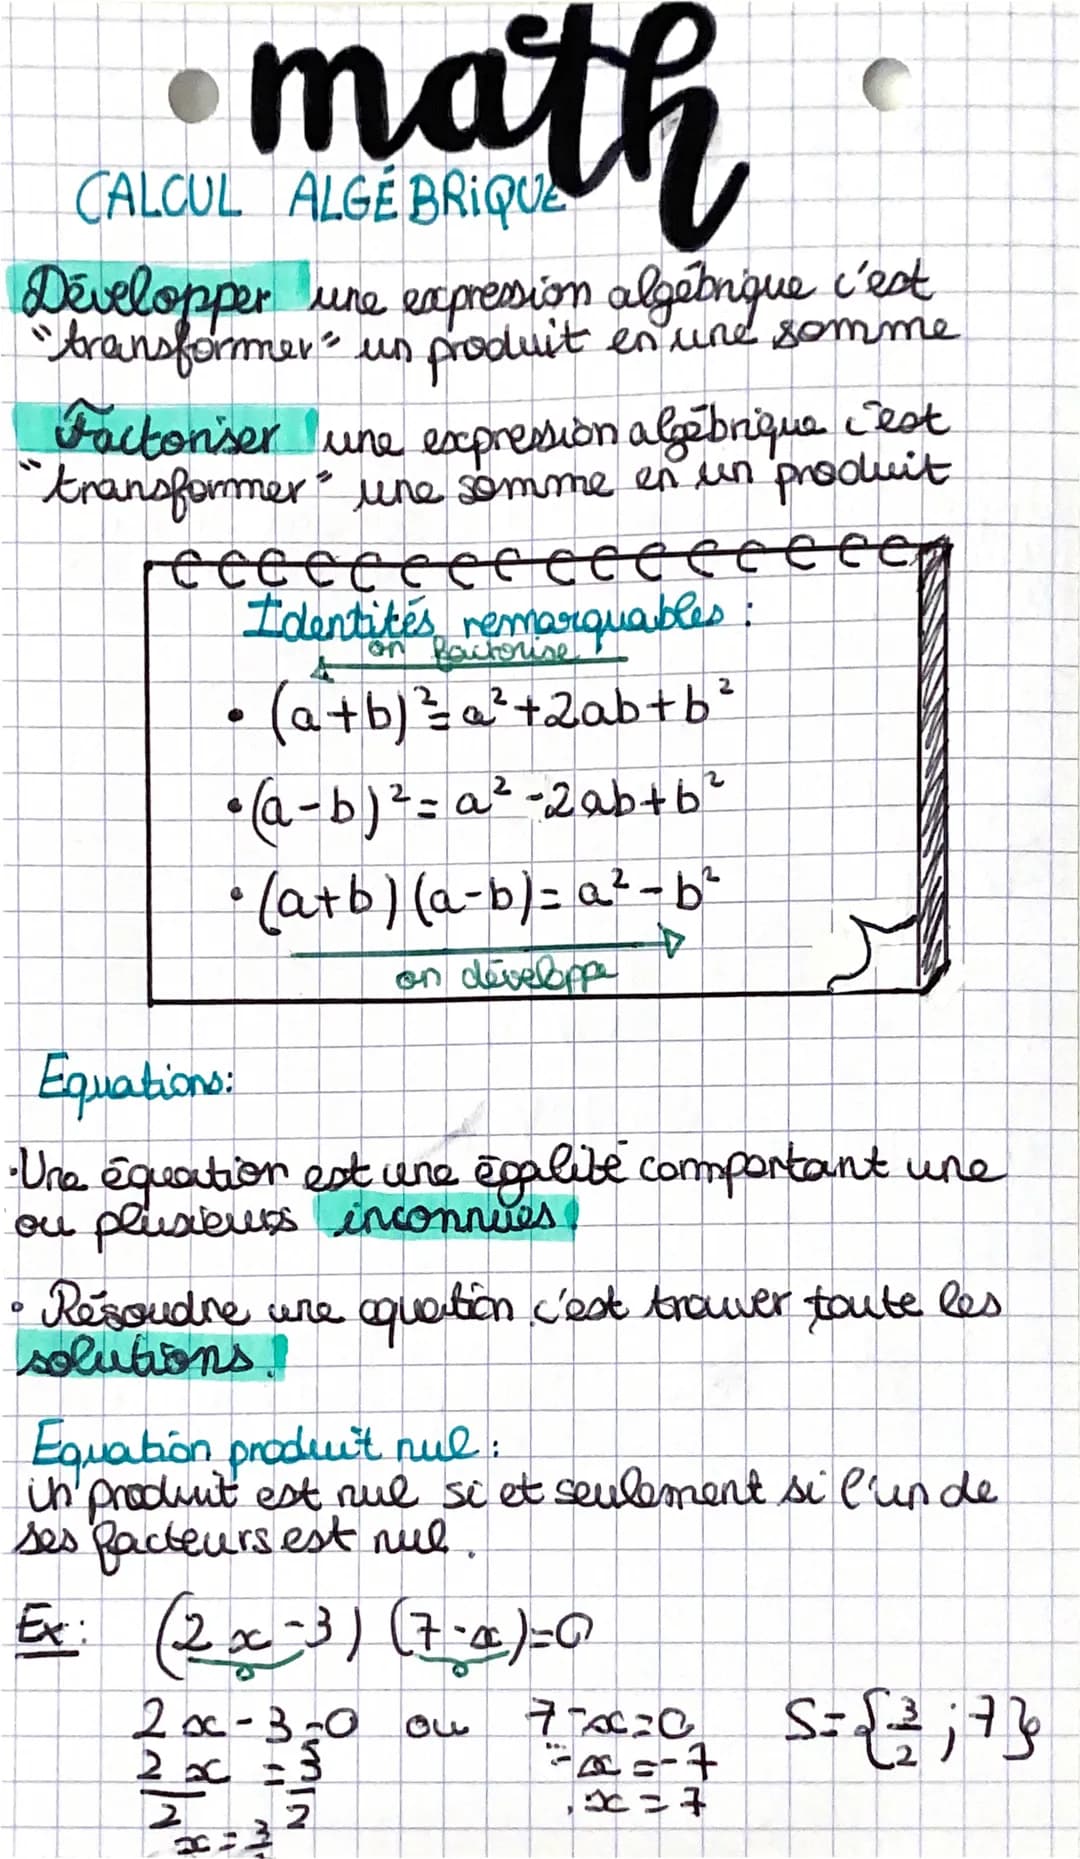 math
CALCUL ALGÉBRIQUE
Développer une expression algébrique c'est
"transformer" un produit en une somme
Factoriser une expression algébrique c'est
"transformer" une somme en un produit
Identités remarquables :
on factorise
• (a+b)²=a²+2ab+b²
• (a-b)²=a²-2ab+b²
• (a+b)(a-b)=a²-b²
on développe
Equations:
• Une équation est une égalité comportant une
ou plusieurs inconnues.
• Résoudre une equation c'est trouver toute les
solutions.
Equation produit nul :
un produit est nul si et seulement si l'un de
ses facteurs est nul.
Ex: (2x-3) (7-x)=0
2x-3=0 ou 7-x=0 S={3/2 ; 7}
2x/2 = 3/2 -x=-7
x=3/2 x=7